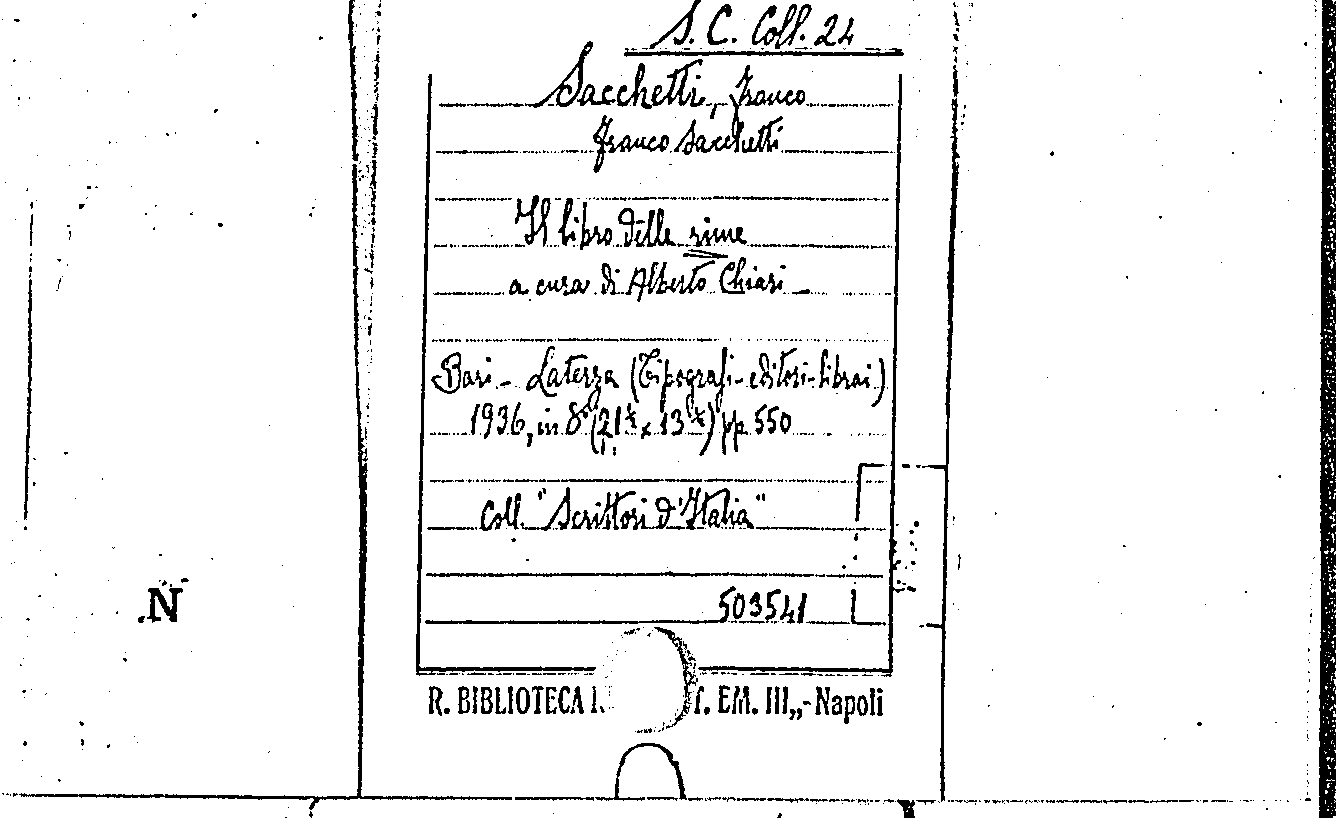 S. C. Coll. 24
Sacchetti, Franco
Franco Sacchetti
Il libro delle rime
a cura di Alberto Chiari -
Bari - Laterza (Tipografi-editori-librai)
1936, in 8° (21½ x 13½) pp 550
Coll. "Scrittori d'Italia"
503541
.N
R. BIBLIOTECA EM. III„-Napoli